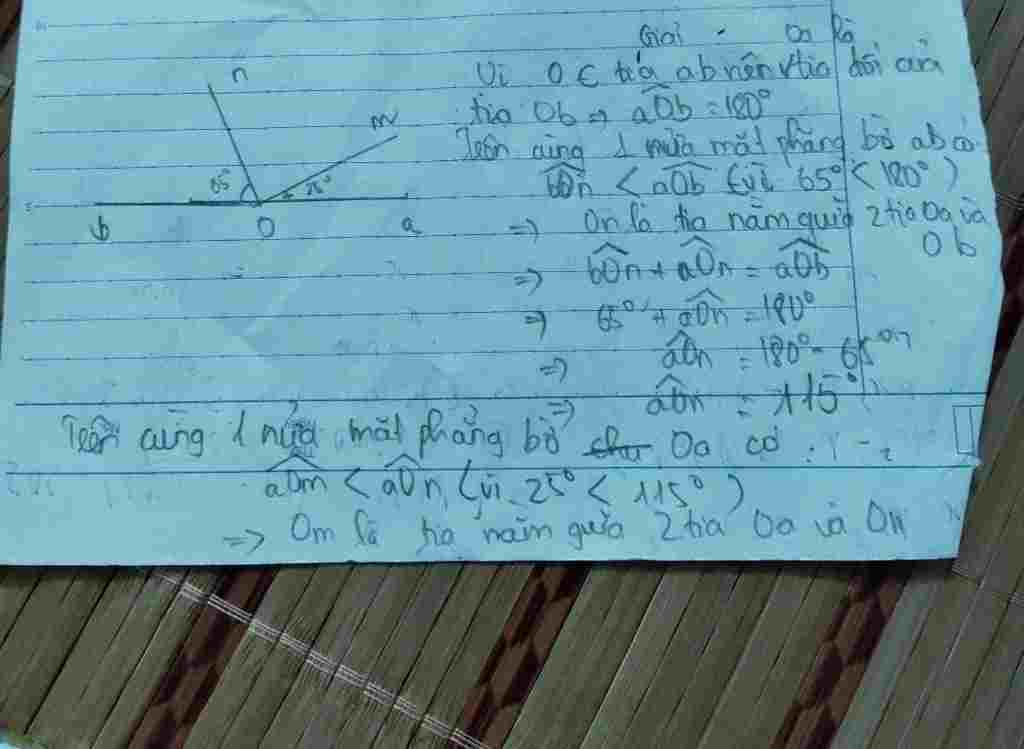 n
m
65°
25°
b
O
a
Giải
Oa là
Vì O ∈ tia ab nên tia đối của
tia Ob ⇒ aOb = 180°
Trên cùng 1 nửa mặt phẳng bờ ab có
bOn < aOb (vì 65° < 180°)
⇒ On là tia nằm giữa 2 tia Oa và
Ob
⇒ bOn + aOn = aOb
⇒ 65° + aOn = 180°
⇒ aOn = 180° - 65°
⇒ aOn = 115°
Trên cùng 1 nửa mặt phẳng bờ Oa có :
aOm < aOn (vì 25° < 115°)
⇒ Om là tia nằm giữa 2 tia Oa và On